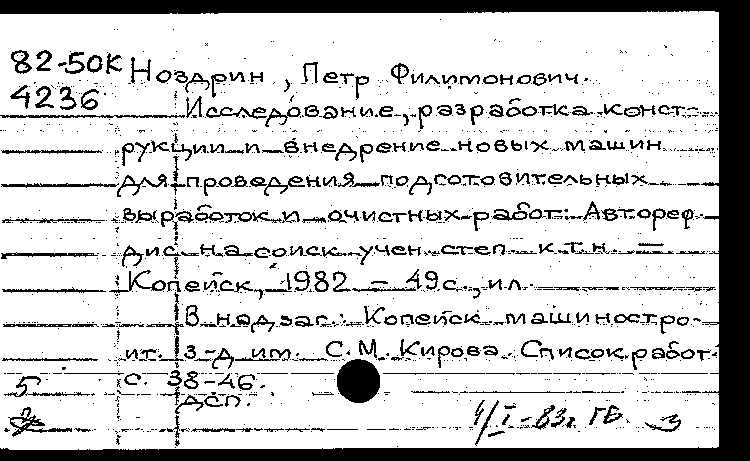 82-50К Ноздрин, Петр Филимонович.
4236
Исследование, разработка конст-
рукции и внедрение новых машин
для проведения подготовительных
выработок и очистных работ: Автореф
дис. на соиск учен. степ к.т.н. —
Копейск, 1982 - 49с., ил.
В надзаг.: Копейск машиностро-
ит. з-д им. С.М. Кирова. Список работ:
5 с. 38-46.
ДСП.
4/I-83г ГВ. 3